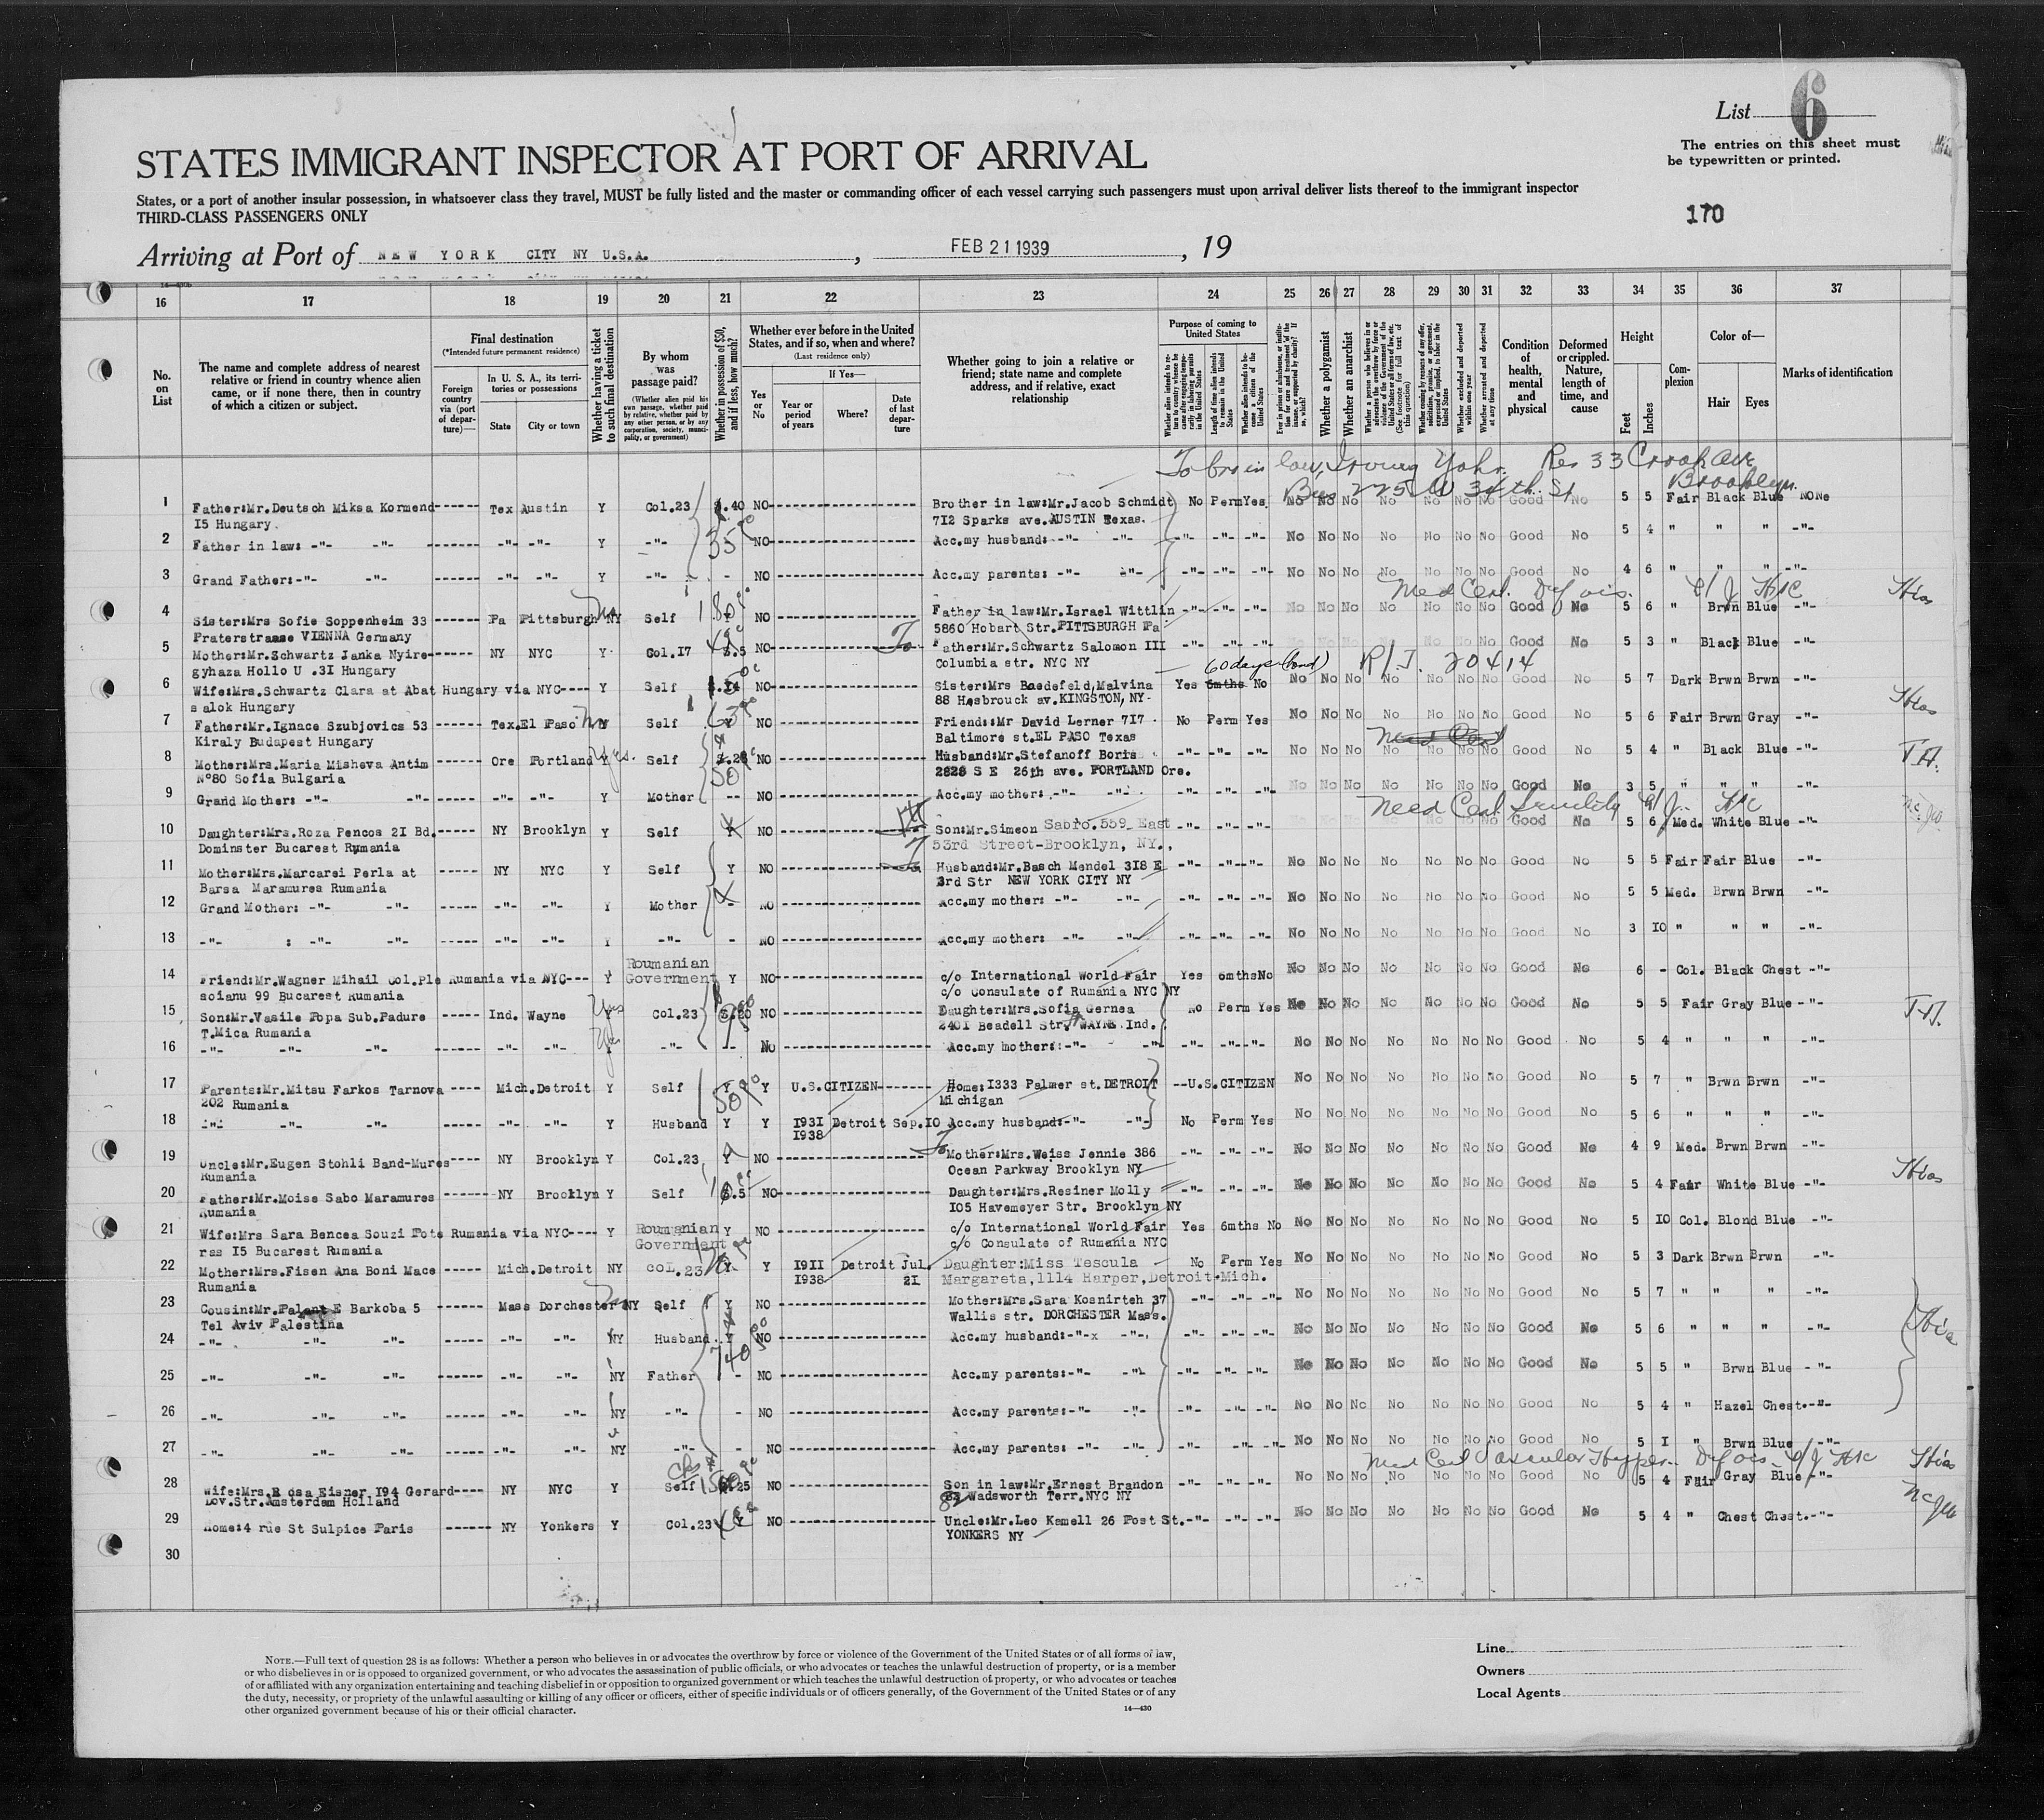 List 6
The entries on this sheet must
be typewritten or printed.
STATES IMMIGRANT INSPECTOR AT PORT OF ARRIVAL
States, or a port of another insular possession, in whatsoever class they travel, MUST be fully listed and the master or commanding officer of each vessel carrying such passengers must upon arrival deliver lists thereof to the immigrant inspector
THIRD-CLASS PASSENGERS ONLY
170
Arriving at Port of NEW YORK CITY NY U.S.A. , FEB 21 1939 , 19
16 17 18 19 20 21 22 23 24 25 26 27 28 29 30 31 32 33 34 35 36 37
No. on List
The name and complete address of nearest relative or friend in country whence alien came, or if none there, then in country of which a citizen or subject.
Final destination
(*Intended future permanent residence)
Foreign country via (port of departure)—
In U. S. A., its territories or possessions
State City or town
Whether having a ticket to such final destination
By whom was passage paid?
(Whether alien paid his own passage, whether paid by relative, whether paid by any other person, or by any corporation, society, municipality, or government)
Whether in possession of $50, and if less, how much?
Whether ever before in the United States, and if so, when and where?
(Last residence only)
Yes or No
If Yes—
Year or period of years Where? Date of last departure
Whether going to join a relative or friend; state name and complete address, and if relative, exact relationship
Purpose of coming to United States
Whether alien intends to return to country whence he came after engaging temporarily in laboring pursuits in the United States
Length of time alien intends to remain in the United States
Whether alien intends to become a citizen of the United States
Ever in prison or almshouse, or institution for care and treatment of the insane, or supported by charity? If so, which?
Whether a polygamist
Whether an anarchist
Whether a person who believes in or advocates the overthrow by force or violence of the Government of the United States or all forms of law, etc. (See footnote for full text of this question)
Whether coming by reason of any offer, solicitation, promise, or agreement, expressed or implied, to labor in the United States
Whether excluded and deported within one year
Whether arrested and deported at any time
Condition of health, mental and physical
Deformed or crippled. Nature, length of time, and cause
Height
Feet Inches
Complexion
Color of—
Hair Eyes
Marks of identification
To bro in law, Irving Yohr. Res 33 Crook Ave
Brooklyn.
Bus 225 W 34th. St
1 Father:Mr.Deutsch Miksa Kormend------ Tex Austin Y Col.23 $.40 NO Brother in law:Mr.Jacob Schmidt No Perm Yes No No No No No No No Good No 5 5 Fair Black Blue NONe
I5 Hungary. 7I2 Sparks ave.AUSTIN Texas.
2 Father in law: -"- -"- ------ -"- -"- Y -"- 35 NO Acc.my husband: -"- -"- -"- -"- -"- No No No No No No No Good No 5 4 " " " -"-
3 Grand Father:-"- -"- ------ -"- -"- Y -"- - NO Acc.my parents: -"- -"- -"- -"- -"- No No No No No No No Good No 4 6 " " " -"-
Med Cert. Def vis. Hias
4 Sister:Mrs Sofie Soppenheim 33 ------ Pa Pittsburgh NY Self 180 NO Father in law:Mr.Israel Wittlin -"- -"- -"- No No No No No No No Good No 5 6 " Brwn Blue -"-
Praterstrasse VIENNA Germany 5860 Hobart Str.PITTSBURGH Pa
5 Mother:Mr.Schwartz Janka Nyire------- NY NYC Y Col.I7 $.5 NO Father:Mr.Schwartz Salomon III -"- -"- -"- Good No 5 3 " Black Blue -"-
gyhaza Hollo U .3I Hungary Columbia str. NYC NY
60 days (bond) R/I. 20414
6 Wife:Mrs.Schwartz Clara at Abat Hungary via NYC---- Y Self NO Sister:Mrs Baedefeld,Malvina Yes 6mths No No No No No No No No Good No 5 7 Dark Brwn Brwn -"-
s alok Hungary 88 Hasbrouck av.KINGSTON, NY- Hias
7 Father:Mr.Ignace Szubjovics 53 ------ Tex.El Paso Y Self Y NO Friend::Mr David Lerner 7I7 No Perm Yes No No No No No No No Good No 5 6 Fair Brwn Gray -"-
Kiraly Budapest Hungary Baltimore st.EL PASO Texas
8 Mother:Mrs.Maria Misheva Antim ------ Ore Portland Y Self $.28 NO Husband:Mr.Stefanoff Boris -"- -"- -"- No No No No No No No Good No 5 4 " Black Blue -"-
N°80 Sofia Bulgaria 2828 S E 26th ave. PORTLAND Ore.
9 Grand Mother: -"- -"- ------ -"- -"- Y Mother -- NO Acc.my mother: -"- -"- -"- -"- -"- No No No No No No No Good No 3 5 " " " -"-
Med Cert. Senility
10 Daughter:Mrs.Roza Pencos 2I Bd.------ NY Brooklyn Y Self Y NO Son:Mr.Simeon Sabro.559 East -"- -"- -"- Good No 5 6 Med. White Blue -"-
Dominster Bucarest Rumania 53rd Street-Brooklyn, NY.,
11 Mother:Mrs.Marcarei Perla at ----- NY NYC Y Self Y NO Husband:Mr.Basch Mendel 3I8 E -"- -"- -"- No No No No No No No Good No 5 5 Fair Fair Blue -"-
Barsa Maramures Rumania 3rd Str NEW YORK CITY NY
12 Grand Mother: -"- -"- ----- -"- -"- Y Mother - NO Acc.my mother: -"- -"- -"- -"- -"- No No No No No No No Good No 5 5 Med. Brwn Brwn -"-
13 -"- : -"- -"- ----- -"- -"- Y -"- - NO Acc.my mother: -"- -"- -"- -"- -"- No No No No No No No Good No 3 IO " " " -"-
14 Friend:Mr.Wagner Mihail Col.Ple Rumania via NYC--- Y Roumanian Government Y NO c/o International World Fair Yes 6mths No No No No No No No No Good No 6 - Col. Black Chest -"-
soianu 99 Bucarest Rumania c/o Consulate of Rumania NYC NY
15 Son:Mr.Vasile Popa Sub.Padure ----- Ind. Wayne Y Col.23 NO Daughter:Mrs.Sofia Gernea No Perm Yes No No No No No No No Good No 5 5 Fair Gray Blue -"-
T.Mica Rumania 240I Beadell Str. WAYNE Ind.
16 -"- -"- -"- ----- -"- -"- -"- -- No Acc.my mother::-"- -"- -"- -"- -"- No No No No No No No Good No 5 4 " " " -"-
17 Parents:Mr.Mitsu Farkos Tarnova ---- Mich.Detroit Y Self Y Y U.S.CITIZEN------- Home:I333 Palmer st.DETROIT --U.S.CITIZEN No No No No No No No Good No 5 7 " Brwn Brwn -"-
202 Rumania 50 Michigan
18 -"- -"- -"- ---- -"- -"- Y Husband Y Y I93I Detroit Sep.IO Acc.my husband:-"- -"- No Perm Yes No No No No No No No Good No 5 6 " " " -"-
I938
19 Uncle:Mr.Eugen Stohli Band-Mures---- NY Brooklyn Y Col.23 Y NO Mother:Mrs.Weiss Jennie 386 -"- -"- -"- No No No No No No No Good No 4 9 Med. Brwn Brwn -"-
Rumania Ocean Parkway Brooklyn NY Hias
20 Father:Mr.Moise Sabo Maramures ------ NY Brooklyn Y Self $.5 NO Daughter:Mrs.Resiner Molly -"- -"- -"- No No No No No No No Good No 5 4 Fair White Blue -"-
Rumania I05 Havemeyer Str. Brooklyn NY
21 Wife:Mrs Sara Bencea Souzi Pote Rumania via NYC---- Y Roumanian Government Y NO c/o International World Fair Yes 6mths No No No No No No No No Good No 5 IO Col. Blond Blue -"-
ras I5 Bucarest Rumania c/o Consulate of Rumania NYC
22 Mother:Mrs.Fisen Ana Boni Mace ----- Mich.Detroit NY coL.23 Y Y I9II Detroit Jul. Daughter:Miss Tescula No Perm Yes No No No No No No No Good No 5 3 Dark Brwn Brwn -"-
Rumania I938 2I Margareta,1114 Harper,Detroit.Mich.
23 Cousin:Mr.Palant E Barkoba 5 ------ Mass Dorchester NY Self Y NO Mother:Mrs.Sara Kosnirteh 37 -"- -"- -"- No No No No No No No Good No 5 7 " " " -"-
Tel Aviv Palestina Wallis str. DORCHESTER Mass.
24 -"- -"- -"- ------ -"- -"- NY Husband Y NO Acc.my husband:-"-x -"-, -"- -"- -"- No No No No No No No Good No 5 6 " " " -"-
25 -"- -"- -"- ------ -"- -"- NY Father - NO Acc.my parents:-"- -"- -"- -"- -"- No No No No No No No Good No 5 5 " Brwn Blue -"-
26 -"- -"- -"- ------ -"- -"- NY -"- - NO Acc.my parents:-"- -"- -"- -"- -"- No No No No No No No Good No 5 4 " Hazel Chest.-"-
27 -"- -"- -"- ------ -"- -"- NY -"- - NO Acc.my parents: -"- -"- -"- -"- -"- No No No No No No No Good No 5 I " Brwn Blue -"-
Med Cert Vascular Hyper. Def vis. Hias
28 Wife:Mrs.R osa Eisner I94 Gerard---- NY NYC Y Self NO Son in law:Mr.Ernest Brandon -"- -"- -"- No No No No No No No Good No 5 4 Fair Gray Blue -"-
Dov.Str.Amsterdam Holland Wadsworth Terr.NYC NY
29 Home:4 rue St Sulpice Paris ------ NY Yonkers Y Col.23 NO Uncle:Mr.Leo Kamell 26 Post St.-"- -"- -"- No No No No No No No Good No 5 4 " Chest Chest.-"-
YONKERS NY
30
NOTE.—Full text of question 28 is as follows: Whether a person who believes in or advocates the overthrow by force or violence of the Government of the United States or of all forms of law,
or who disbelieves in or is opposed to organized government, or who advocates the assassination of public officials, or who advocates or teaches the unlawful destruction of property, or is a member
of or affiliated with any organization entertaining and teaching disbelief in or opposition to organized government or which teaches the unlawful destruction of property, or who advocates or teaches
the duty, necessity, or propriety of the unlawful assaulting or killing of any officer or officers, either of specific individuals or of officers generally, of the Government of the United States or of any
other organized government because of his or their official character.
14—430
Line
Owners
Local Agents